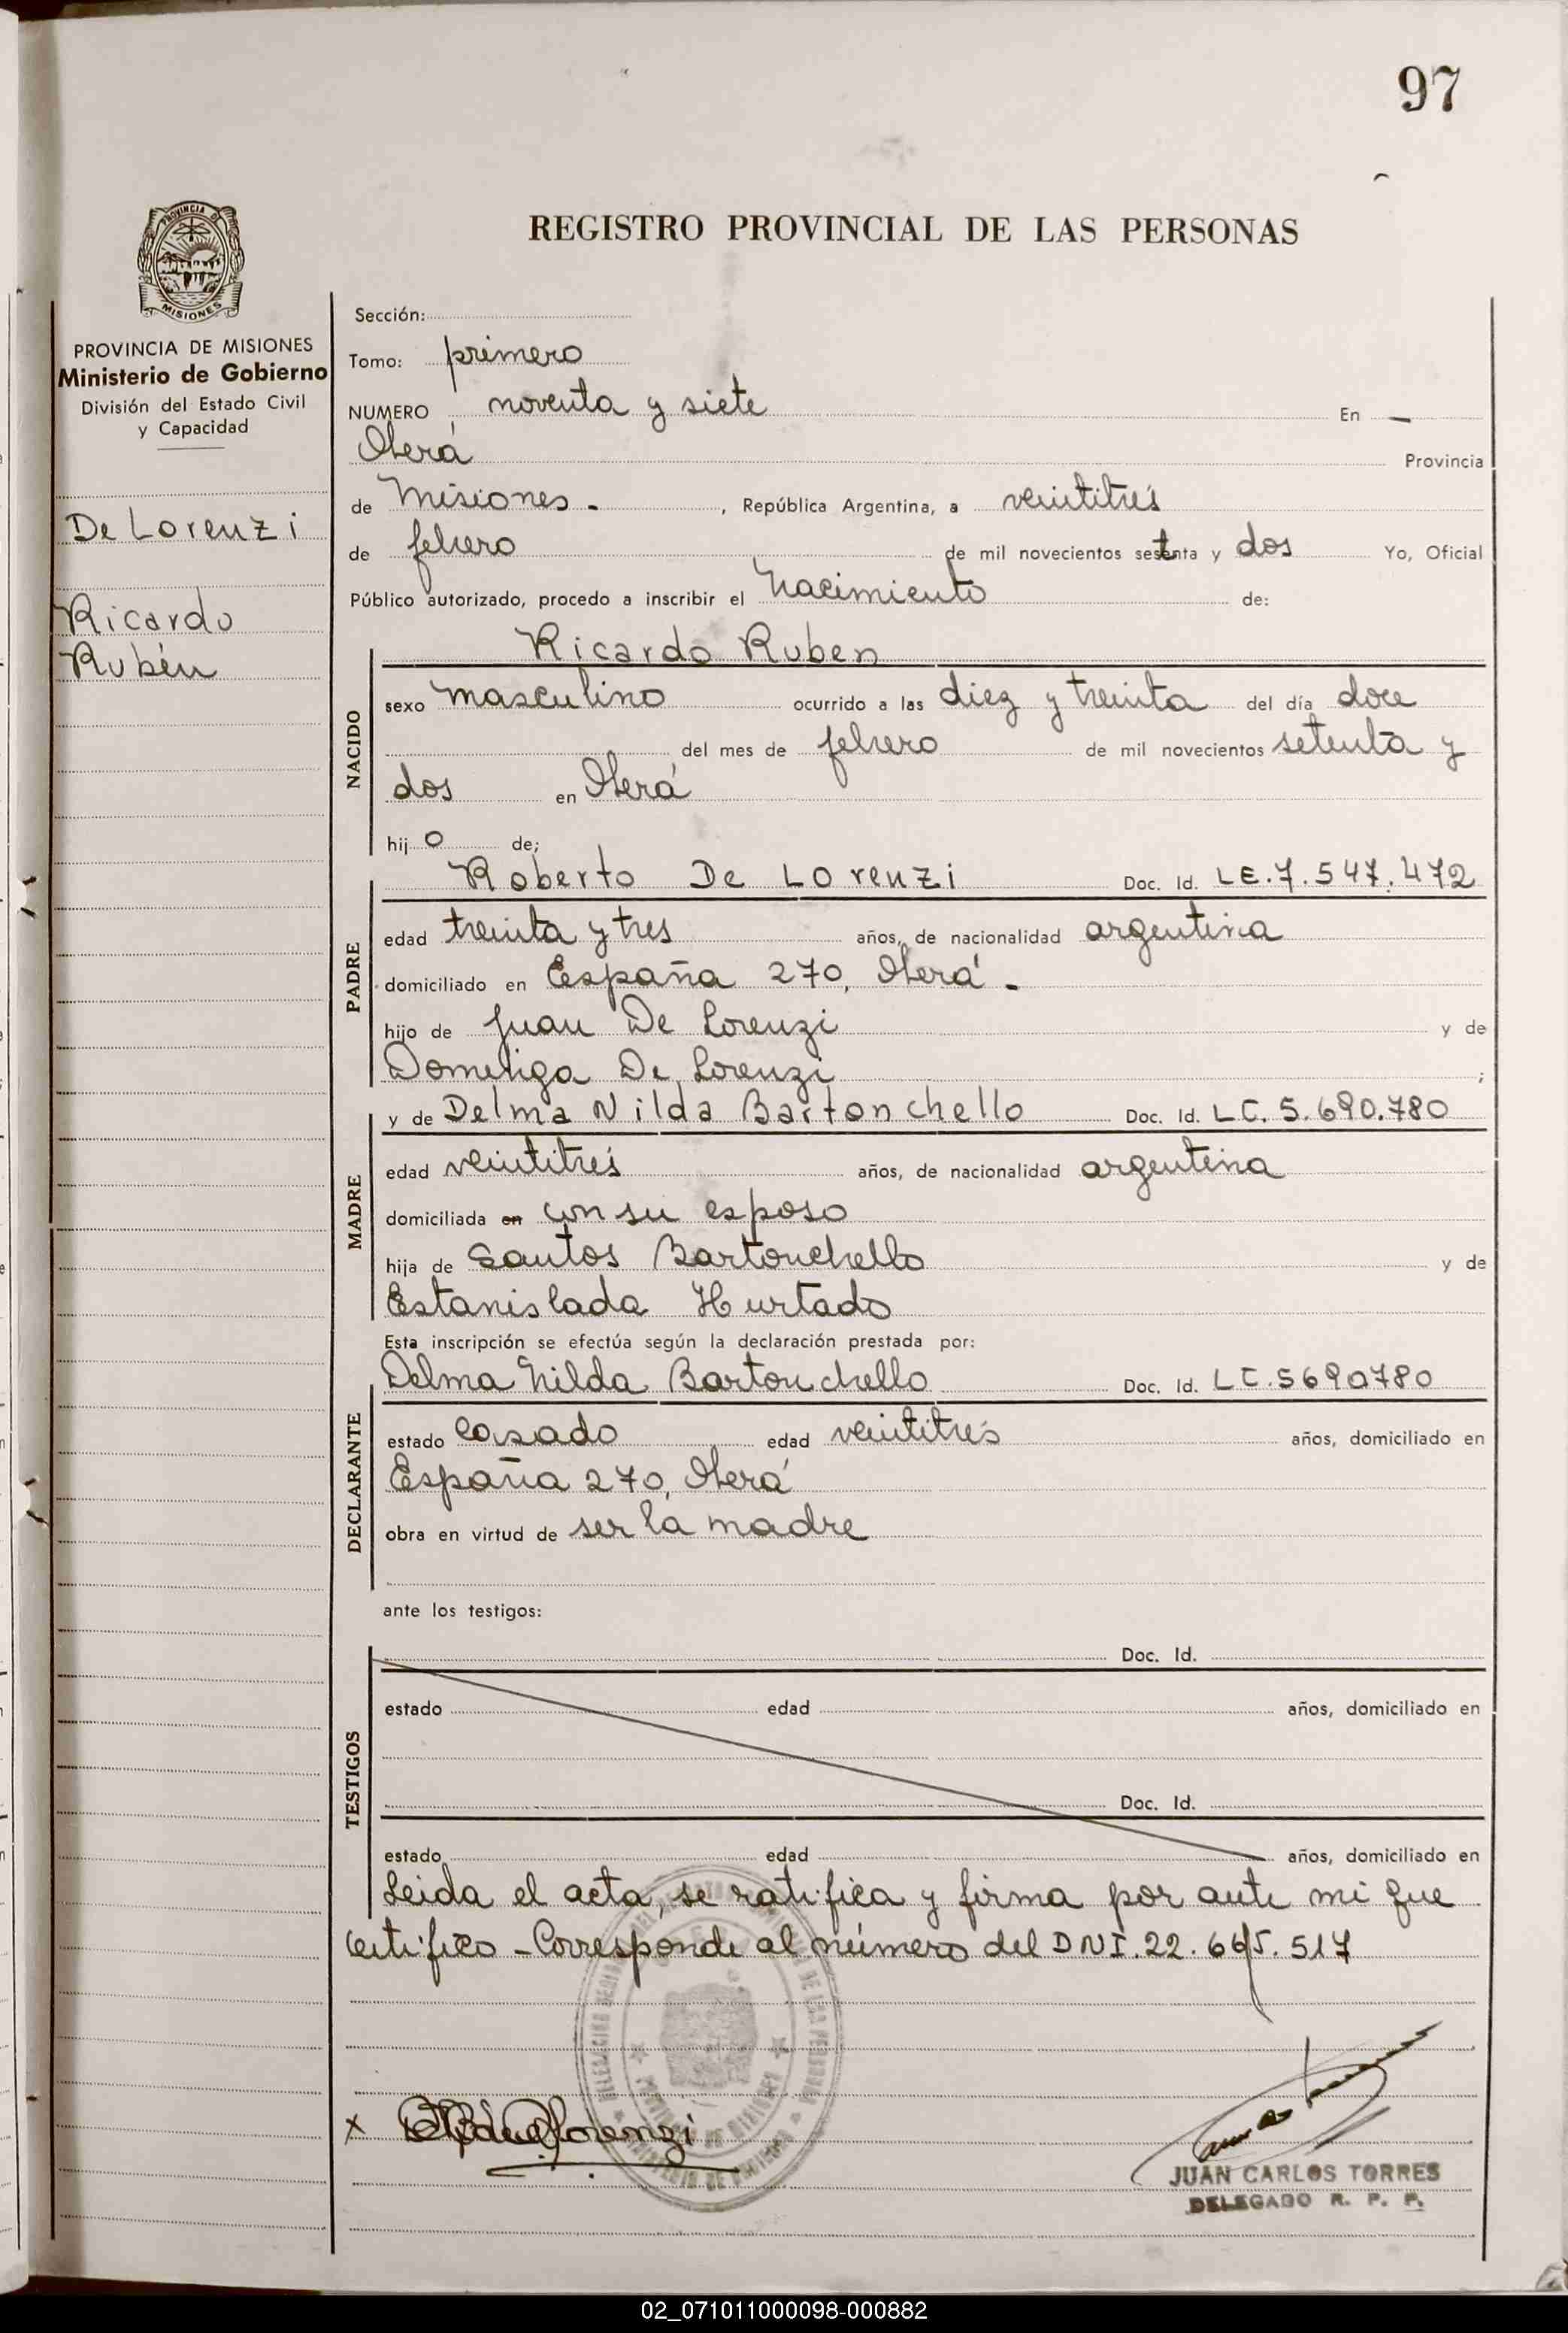 97
REGISTRO PROVINCIAL DE LAS PERSONAS
PROVINCIA DE MISIONES
PROVINCIA DE MISIONES
Ministerio de Gobierno
División del Estado Civil
y Capacidad
De Lorenzi
Ricardo
Rubén
Sección:
Tomo: primero
NUMERO noventa y siete En —
Oberá Provincia
de Misiones - , República Argentina, a veintitrés
de febrero de mil novecientos setenta y dos Yo, Oficial
Público autorizado, procedo a inscribir el Nacimiento de:
Ricardo Ruben
NACIDO
sexo masculino ocurrido a las diez y treinta del día doce
del mes de febrero de mil novecientos setenta y
dos en Oberá
hij o de;
Roberto De Lorenzi Doc. Id. LE.7.547.472
PADRE
edad treinta y tres años, de nacionalidad argentina
domiciliado en España 270, Oberá -
hijo de Juan De Lorenzi y de
Domeniga De Lorenzi ;
y de Delma Nilda Bartonchello Doc. Id. LC. 5.690.780
MADRE
edad veintitrés años, de nacionalidad argentina
domiciliada en con su esposo
hija de Santos Bartonchello y de
Estanislada Hurtado
Esta inscripción se efectúa según la declaración prestada por:
Delma Nilda Bartonchello Doc. Id. LC.5690780
DECLARANTE
estado casado edad veintitrés años, domiciliado en
España 270, Oberá
obra en virtud de ser la madre
ante los testigos:
TESTIGOS
Doc. Id.
estado edad años, domiciliado en
Doc. Id.
estado edad años, domiciliado en
Leida el acta, se ratifica y firma por ante mi que
certifico - Corresponde al número del DNI. 22.665.517
x
JUAN CARLOS TORRES
DELEGADO R. P. P.
02_071011000098-000882